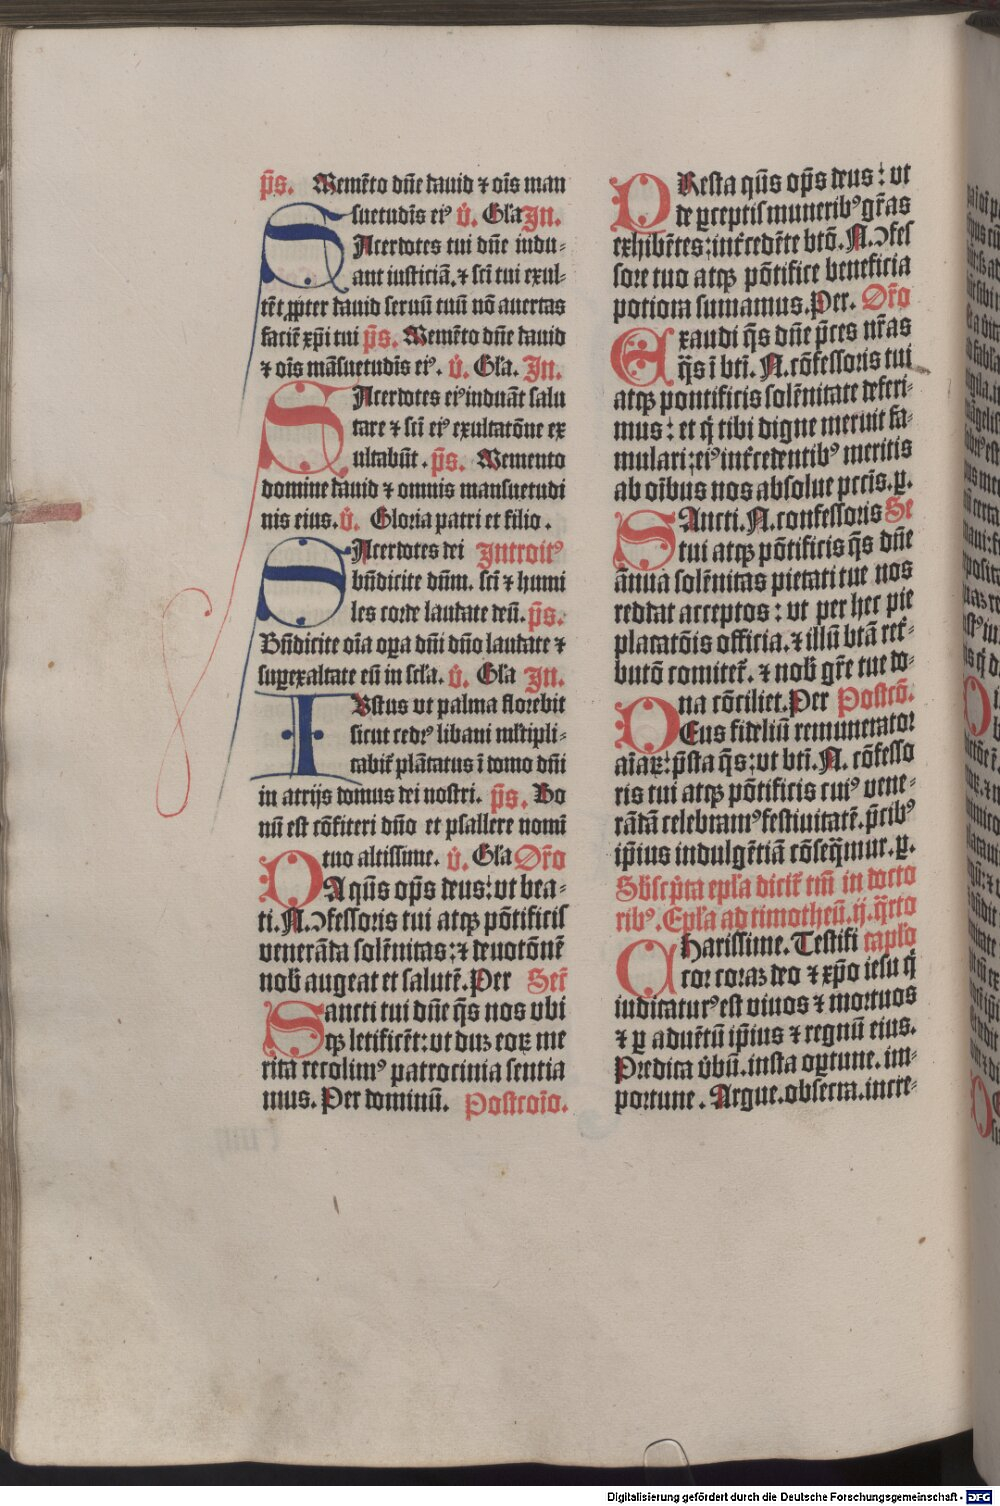 p̄s. Memēto dñe dauid ⁊ oīs man
suetudīs eiꝰ v̇. Gl̄a In.
SAcerdotes tui dñe indu⸗
ant iusticiā. ⁊ sc̄i tui exul⸗
tēt ꝓpter dauid seruū tuū nō auertas
faciē xp̄i tui p̄s. Memēto dñe dauid
⁊ oīs māsuetudīs eiꝰ. v̇. Gl̄a. In.
SAcerdotes eiꝰ induāt salu
tare ⁊ sc̄i eiꝰ exultatōne ex
ultabūt. p̄s. Memento
domine dauid ⁊ omnis mansuetudi
nis eius. v̇. Gloria patri et filio.
SAcerdotes dei Introitꝰ
bn̄dicite dñm. sc̄i ⁊ humi
les corde laudate deū. p̄s.
Bn̄dicite oīa oꝑa dñi dño laudate ⁊
suꝑexaltate eū in sc̄la. v̇. Gl̄a In.
IVstus vt palma florebit
sicut cedrꝰ libani mĺtipli⸗
cabit̄ plātatus ī domo dñi
in atrijs domus dei nostri. p̄s. Bo
nū est cōfiteri dño et psallere nomī
tuo altissime. v̇. Gl̄a Or̄o
DA qūs op̄s deus: vt bea⸗
ti. N. ↄfessoris tui atqꝫ pōtificis
venerāda solēnitas: ⁊ deuotōnē
nob̄ augeat et salutē. Per Secr̄
Sancti tui dñe q̄s nos vbi
qꝫ letificēt: vt duꝫ eoꝝ me
rita recolimꝰ patrocinia sentia
mus. Per dominū. Postcōio.
PResta qūs op̄s deus: vt
de ꝑceptis muneribꝰ gr̄as
exhibētes: int̄cedēte btō. N. ↄfes
sore tuo atqꝫ pōtifice beneficia
potiora sumamus. Per. Or̄o
Exaudi q̄s dñe p̄ces nr̄as
q̄s ī bti. N. cōfessoris tui
atqꝫ pontificis solēnitate deferi⸗
mus: et q̄ tibi digne meruit fa⸗
mulari: eiꝰ int̄cedentibꝰ meritis
ab oībus nos absolue pctis. ꝑ.
SAncti. N. confessoris Se
tui atqꝫ pōtificis q̄s dñe
ānua solēnitas pietati tue nos
reddat acceptos: vt per hec pie
placatōis officia. ⁊ illū btā ret̄⸗
butō comitet̄. ⁊ nob̄ gr̄e tue do⸗
na cōciliet. Per Postcō.
DEus fideliū remunerator
aīaꝝ: p̄sta q̄s: vt bti. N. cōfesso
ris tui atqꝫ pōtificis cuiꝰ vene⸗
rādā celebramꝰ festiuitatē. p̄cibꝰ
ip̄ius indulgētiā cōseq̄mur. ꝑ.
Sb̄scp̄ta epl̄a dicit̄ tm̄ in docto
ribꝰ. Epl̄a ad timotheū. ij. q̄rto
CHarissime. Testifi capl̄o
cor coraꝫ deo ⁊ xp̄o iesu q̄
iudicaturꝰ est viuos ⁊ mortuos
⁊ ꝑ aduētū ip̄ius ⁊ regnū eius.
Predica v̄bū. insta oꝑtune. im⸗
portune. Argue. obsecra. incre⸗
Digitalisierung gefördert durch die Deutsche Forschungsgemeinschaft - DFG